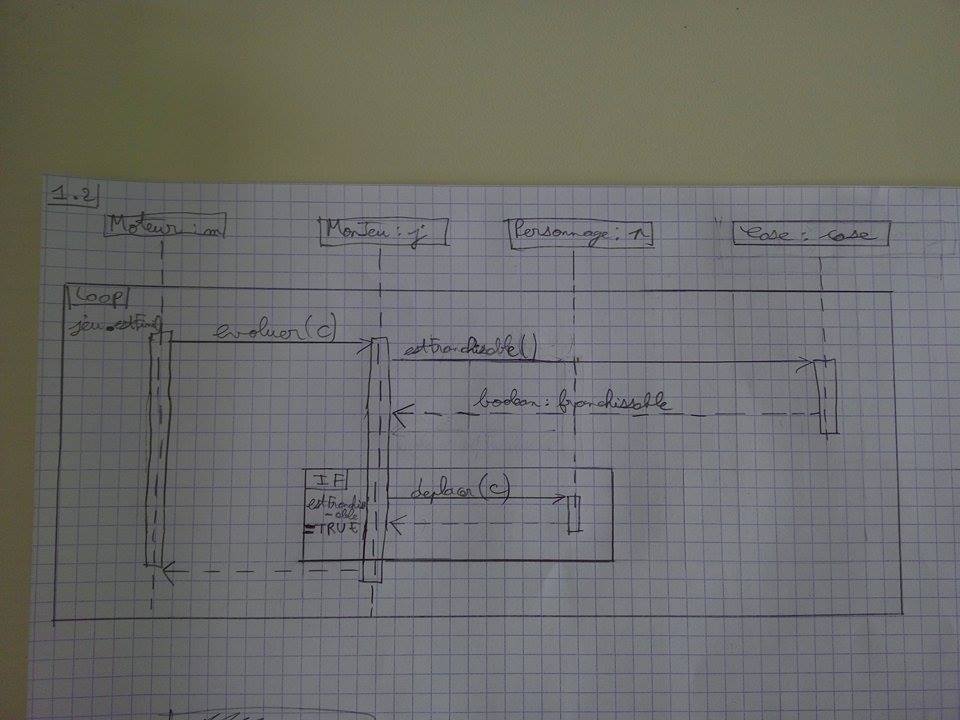 1.2
Moteur : m
MonJeu : j
Personnage : p
Case : case
Loop
jeu.estFini
evoluer(c)
estFranchissable()
boolean : franchissable
IF
deplacer(c)
estFranchis
-able
=TRUE